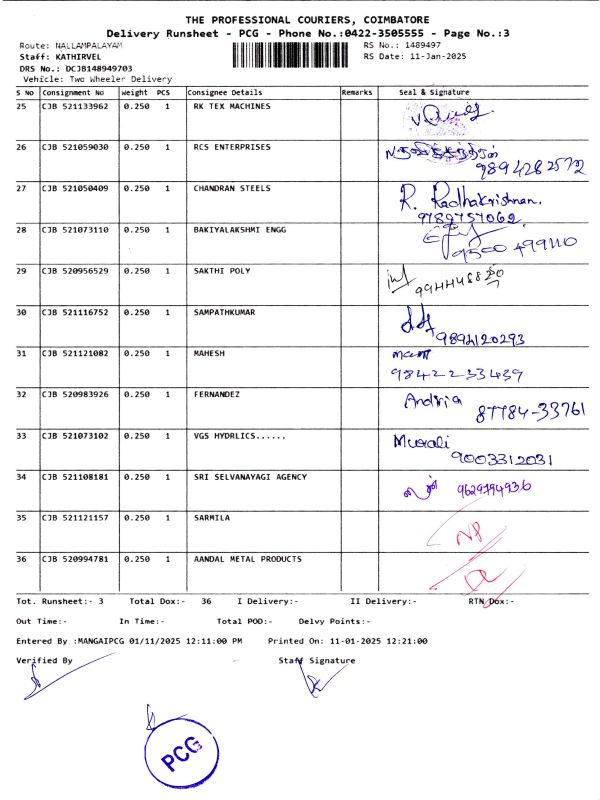 THE PROFESSIONAL COURIERS, COIMBATORE
Delivery Runsheet - PCG - Phone No.:0422-3505555 - Page No.:3
Route: NALLAMPALAYAM RS No.: 1489497
Staff: KATHIRVEL RS Date: 11-Jan-2025
DRS No.: DCJB148949703
Vehicle: Two Wheeler Delivery
S No Consignment No Weight PCS Consignee Details Remarks Seal & Signature
25 CJB 521133962 0.250 1 RK TEX MACHINES
26 CJB 521059030 0.250 1 RCS ENTERPRISES
9894282572
27 CJB 521050409 0.250 1 CHANDRAN STEELS R. Radhakrishnan.
9789757062
28 CJB 521073110 0.250 1 BAKIYALAKSHMI ENGG
9500499110
29 CJB 520956529 0.250 1 SAKTHI POLY
30 CJB 521116752 0.250 1 SAMPATHKUMAR
9894120293
31 CJB 521121082 0.250 1 MAHESH
9842233439
32 CJB 520983926 0.250 1 FERNANDEZ Andria
87784-33761
33 CJB 521073102 0.250 1 VGS HYDRLICS...... Murali
9003312031
34 CJB 521108181 0.250 1 SRI SELVANAYAGI AGENCY
35 CJB 521121157 0.250 1 SARMILA
36 CJB 520994781 0.250 1 AANDAL METAL PRODUCTS
Tot. Runsheet:- 3 Total Dox:- 36 I Delivery:- II Delivery:- RTN Dox:-
Out Time:- In Time:- Total POD:- Delvy Points:-
Entered By :MANGAIPCG 01/11/2025 12:11:00 PM Printed On: 11-01-2025 12:21:00
Verified By Staff Signature
PCG